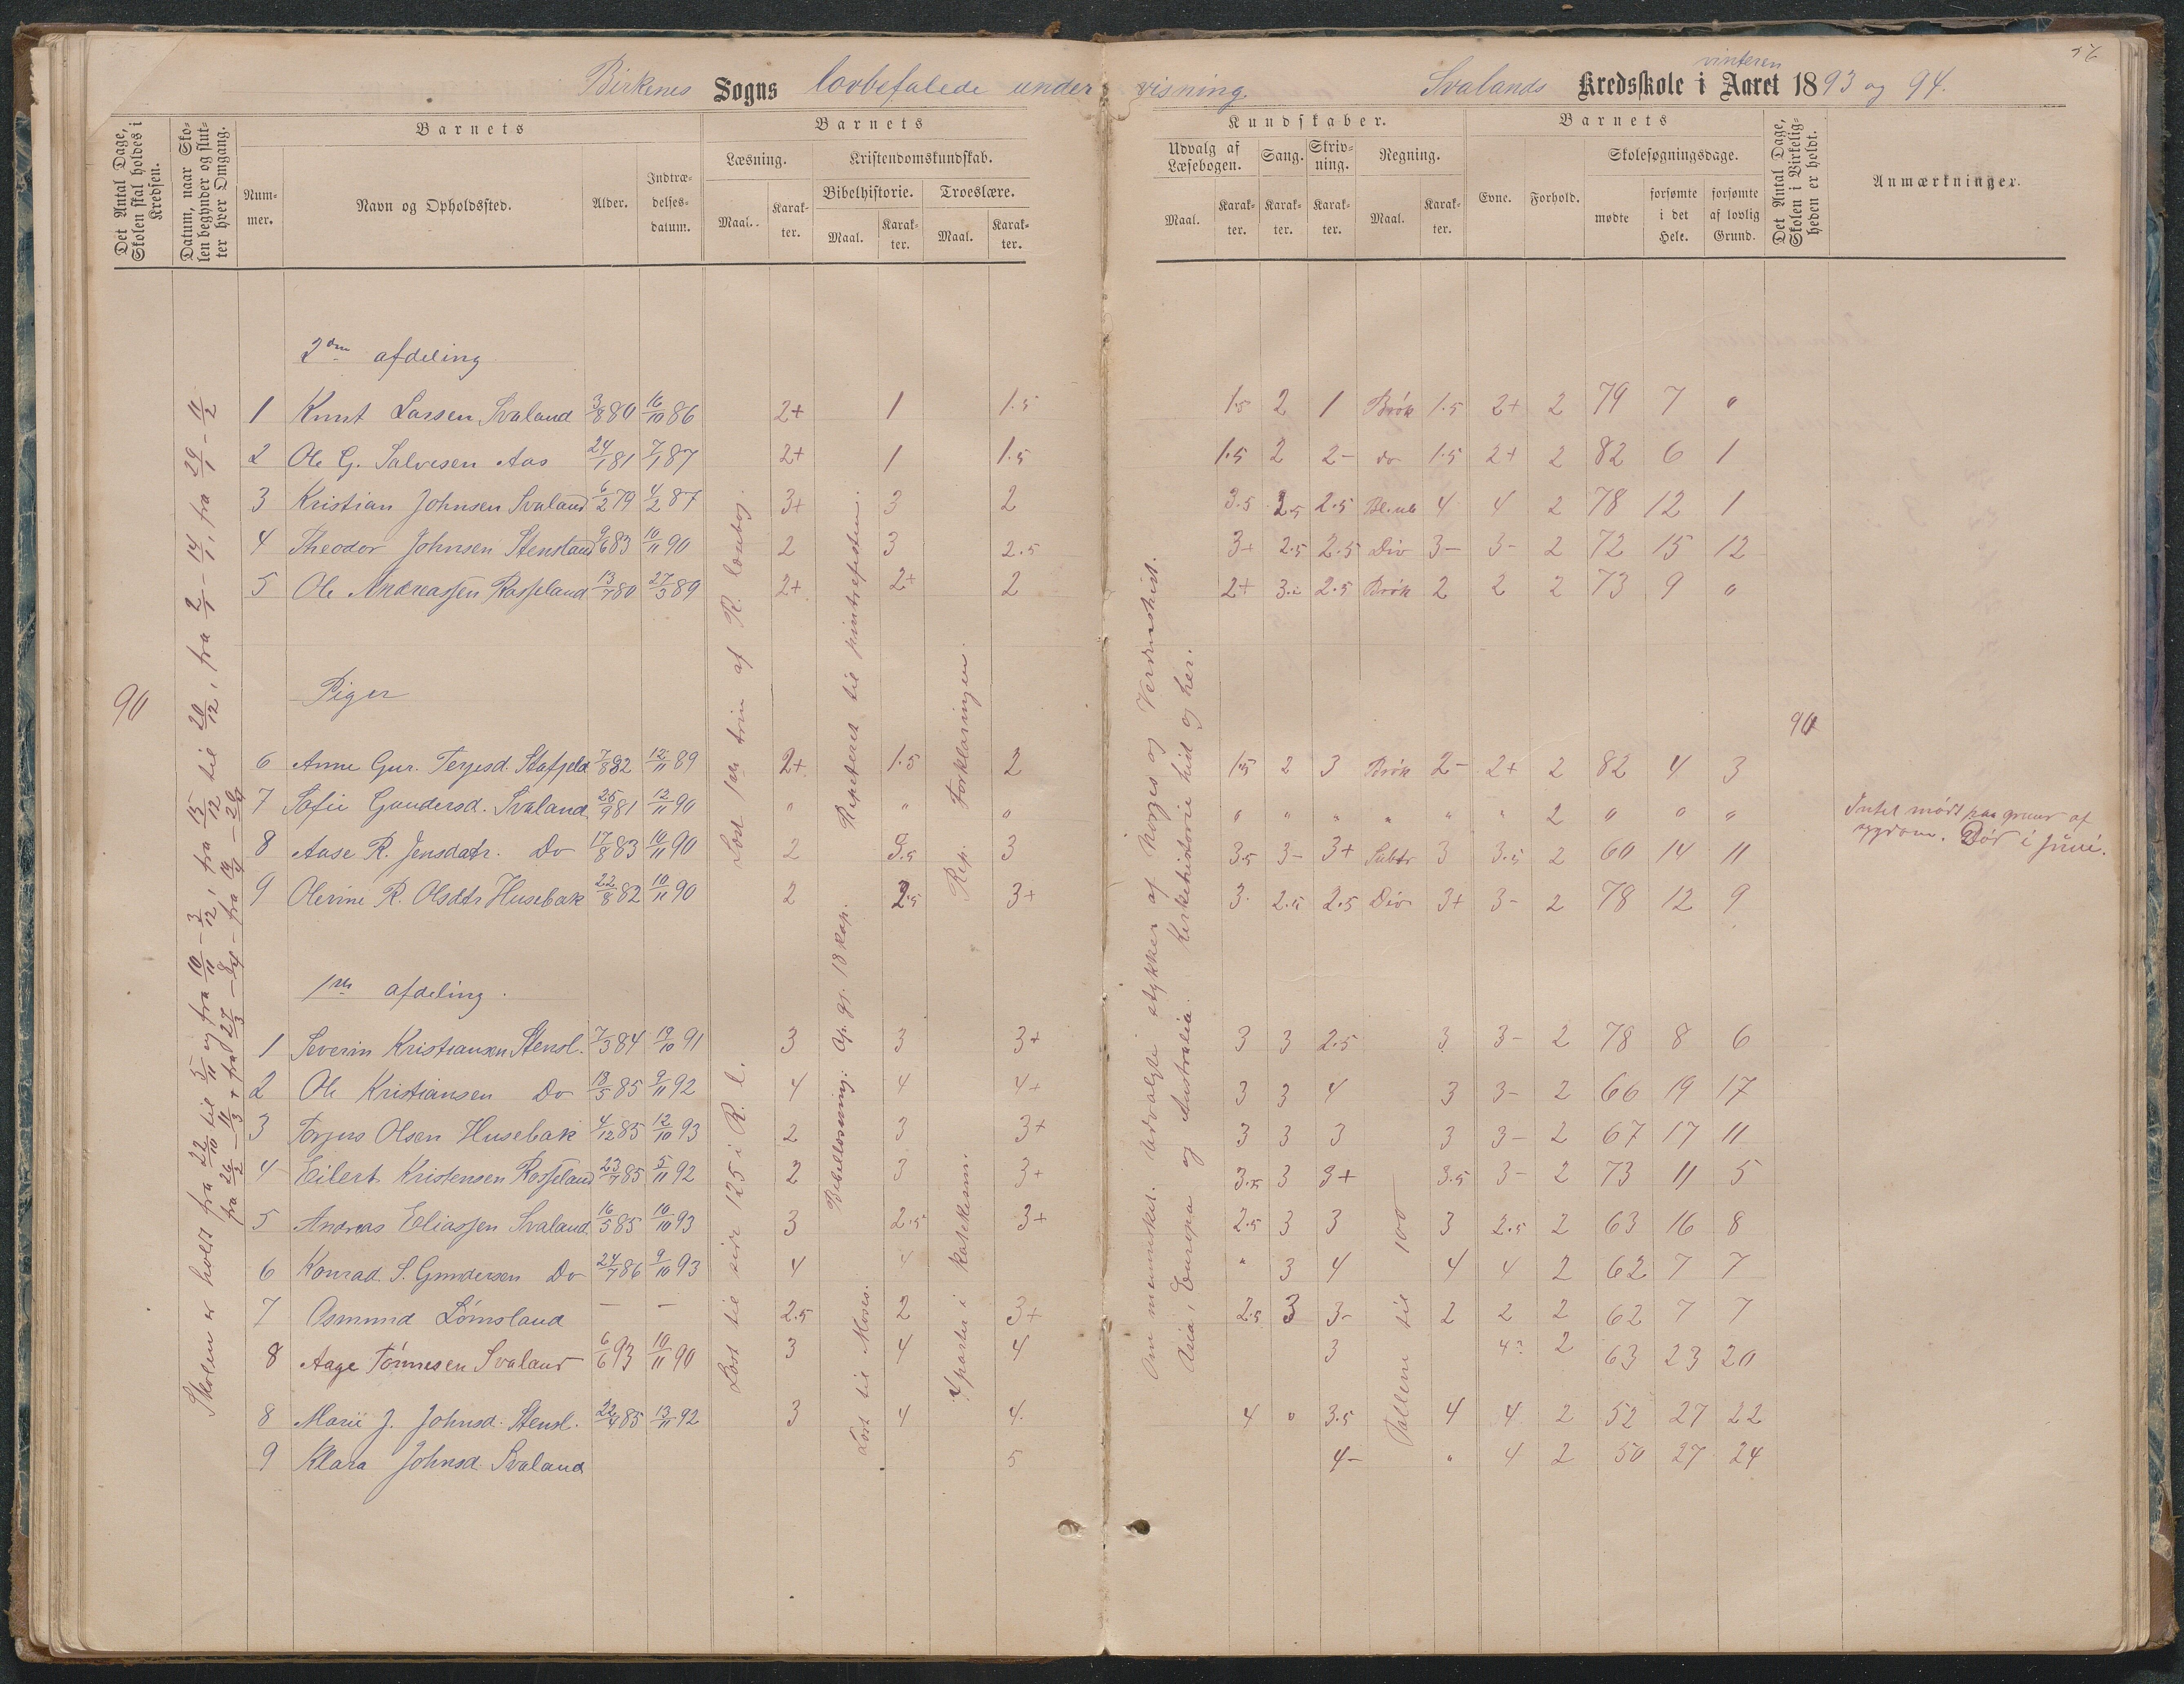 Birkenes Sogns lovbefalede undervisning. Svalands Kredsskole i vinteren Aaret 1893 og 94.
Det Antal Dage, Skolen skal holdes i Kredsen.
Datum, naar Skolen begynder og slutter hver Omgang.
Barnets
Nummer.
Navn og Opholdssted.
Alder.
Indtrædelsesdatum.
Barnets
Læsning.
Maal.
Karakter.
Kristendomskundskab.
Bibelhistorie.
Maal.
Karakter.
Troeslære.
Maal.
Karakter.
Kundskaber.
Udvalg af Læsebogen.
Maal.
Karakter.
Sang.
Karakter.
Skrivning.
Karakter.
Regning.
Maal.
Karakter.
Barnets
Evne.
Forhold.
Skolesøgningsdage.
mødte
forsømte i det Hele.
forsømte af lovlig Grund.
Det Antal Dage, Skolen i Virkeligheden er holdt.
Anmærkninger.
90
Skolen er holdt fra 22/10 til 5/11 og fra 10/11 - 3/12, fra 15/12 til 20/12, fra 2/1 - 14/1, fra 29/1 - 11/2
2den afdeling
1 Knut Larsen Svaland 3/8 80 16/10 86 2+ 1 1.5 1.5 2 1 Brøk 1.5 2+ 2 79 7 "
2 Ole G. Salvesen Aas 24/1 81 7/1 87 2+ 1 1.5 1.5 2 2- do 1.5 2+ 2 82 6 1
3 Kristian Johnsen Svaland 6/2 79 4/2 87 3+ 3 2 3.5 2.5 2.5 4 4 2 78 12 1
4 Theodor Johnsen Stensland 9/6 83 10/11 90 2 3 2.5 3+ 2.5 2.5 Div 3- 3- 2 72 15 12
5 Ole Andreassen Rosseland 13/7 80 27/3 89 2+ 2+ 2 2+ 2.5 Brøk 2 2 2 73 9 "
Piger
6 Anne Gur. Terjesd. Stafjeld 7/8 82 12/11 89 2+ 1.5 2 1.5 2 3 Brøk 2- 2+ 2 82 4 3
7 Sofie Gundersd. Svaland 25/9 81 12/11 90 " " " " " " " " " 2 " " " Intet mødt paa grund af sygdom. Dør i Juni.
8 Aase R. Jensdatr. Do 17/8 83 10/11 90 2 3.5 3 3.5 3- 3+ Subtr 3 3.5 2 60 14 11
9 Olevine R. Olsdtr Husebak 22/8 82 10/11 90 2 2.5 3+ 3. 2.5 2.5 Div 3+ 3- 2 78 12 9
90
1ste afdeling.
1 Severin Kristiansen Stensl. 7/3 84 19/10 91 3 3 3+ 3 3 2.5 3 3- 2 78 8 6
2 Ole Kristiansen Do 18/5 85 9/11 92 4 4 4+ 3 3 4 3 3- 2 66 19 17
3 Torjus Olsen Husebak 4/12 85 12/10 93 2 3 3+ 3 3 3 3 3- 2 67 17 11
4 Eilert Kristensen Rosseland 23/7 85 5/11 92 2 3 3+ 3.5 3 3+ 3.5 3- 2 73 11 5
5 Andreas Eliassen Svaland 16/5 85 10/10 93 3 2.5 3+ 2.5 3 3 3 2.5 2 63 16 8
6 Konrad S. Gundersen Do 24/7 86 9/10 93 4 4 " 3 4 4 4 2 62 7 7
7 Osmund Lømsland — — 2.5 2 3+ 2.5 3 3- 2 2 2 62 7 7
8 Aage Tønnesen Svaland 6/6 93 10/11 90 3 4 4 3 4? 2 63 23 20
8 Marie J. Johnsd. Stensl. 22/4 85 13/11 92 3 4 4. 4 " 3.5 4 4 2 52 27 22
9 Klara Johnsd. Svaland 5 4- " 4 2 50 27 24
Læst til side 125 i R. l.
Læst 1ste trin af R. læsebog.
Læst til Moses.
Bibellæsning: Ap. gj. 18 kap.
Repeteret til pintsefesten.
4 parter i katekism.
Rep. Forklaringen.
Om mennesket. Udvalgte stykker af Norges og Verdenshist.
Asia, Europa og Australia. Kirkehistorie hist og her.
Tallene til 100